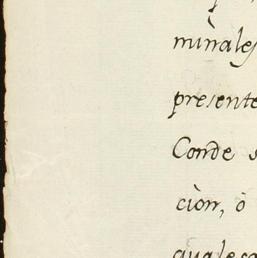 minales
presente
Conde s
cion, ò
quales